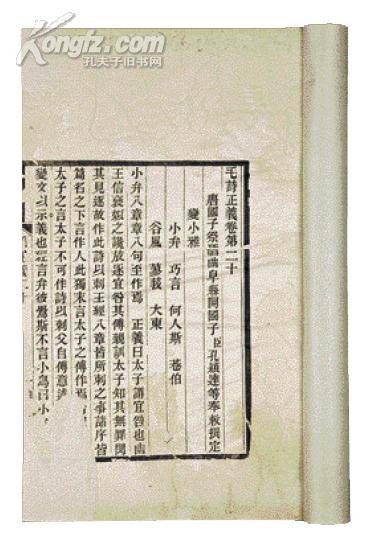 Kongfz.com
孔夫子旧书网
毛詩正義卷第二十
唐國子祭酒曲阜縣開國子臣孔穎達等奉勅撰定
變小雅
小弁 巧言 何人斯 巷伯
谷風 蓼莪 大東
小弁八章章八句至作焉 正義曰太子謂宜咎也幽
王信褒姒之讒放逐宜咎其傅親訓太子知其無罪閔
其見逐故作此詩以刺王經八章皆所刺之事諸序皆
篇名之下言作人此獨末言太子之傅作焉
太子之言太子不可作詩以刺父自傅意
變文以示義也經言弁彼鸒斯不言小鳥曰小